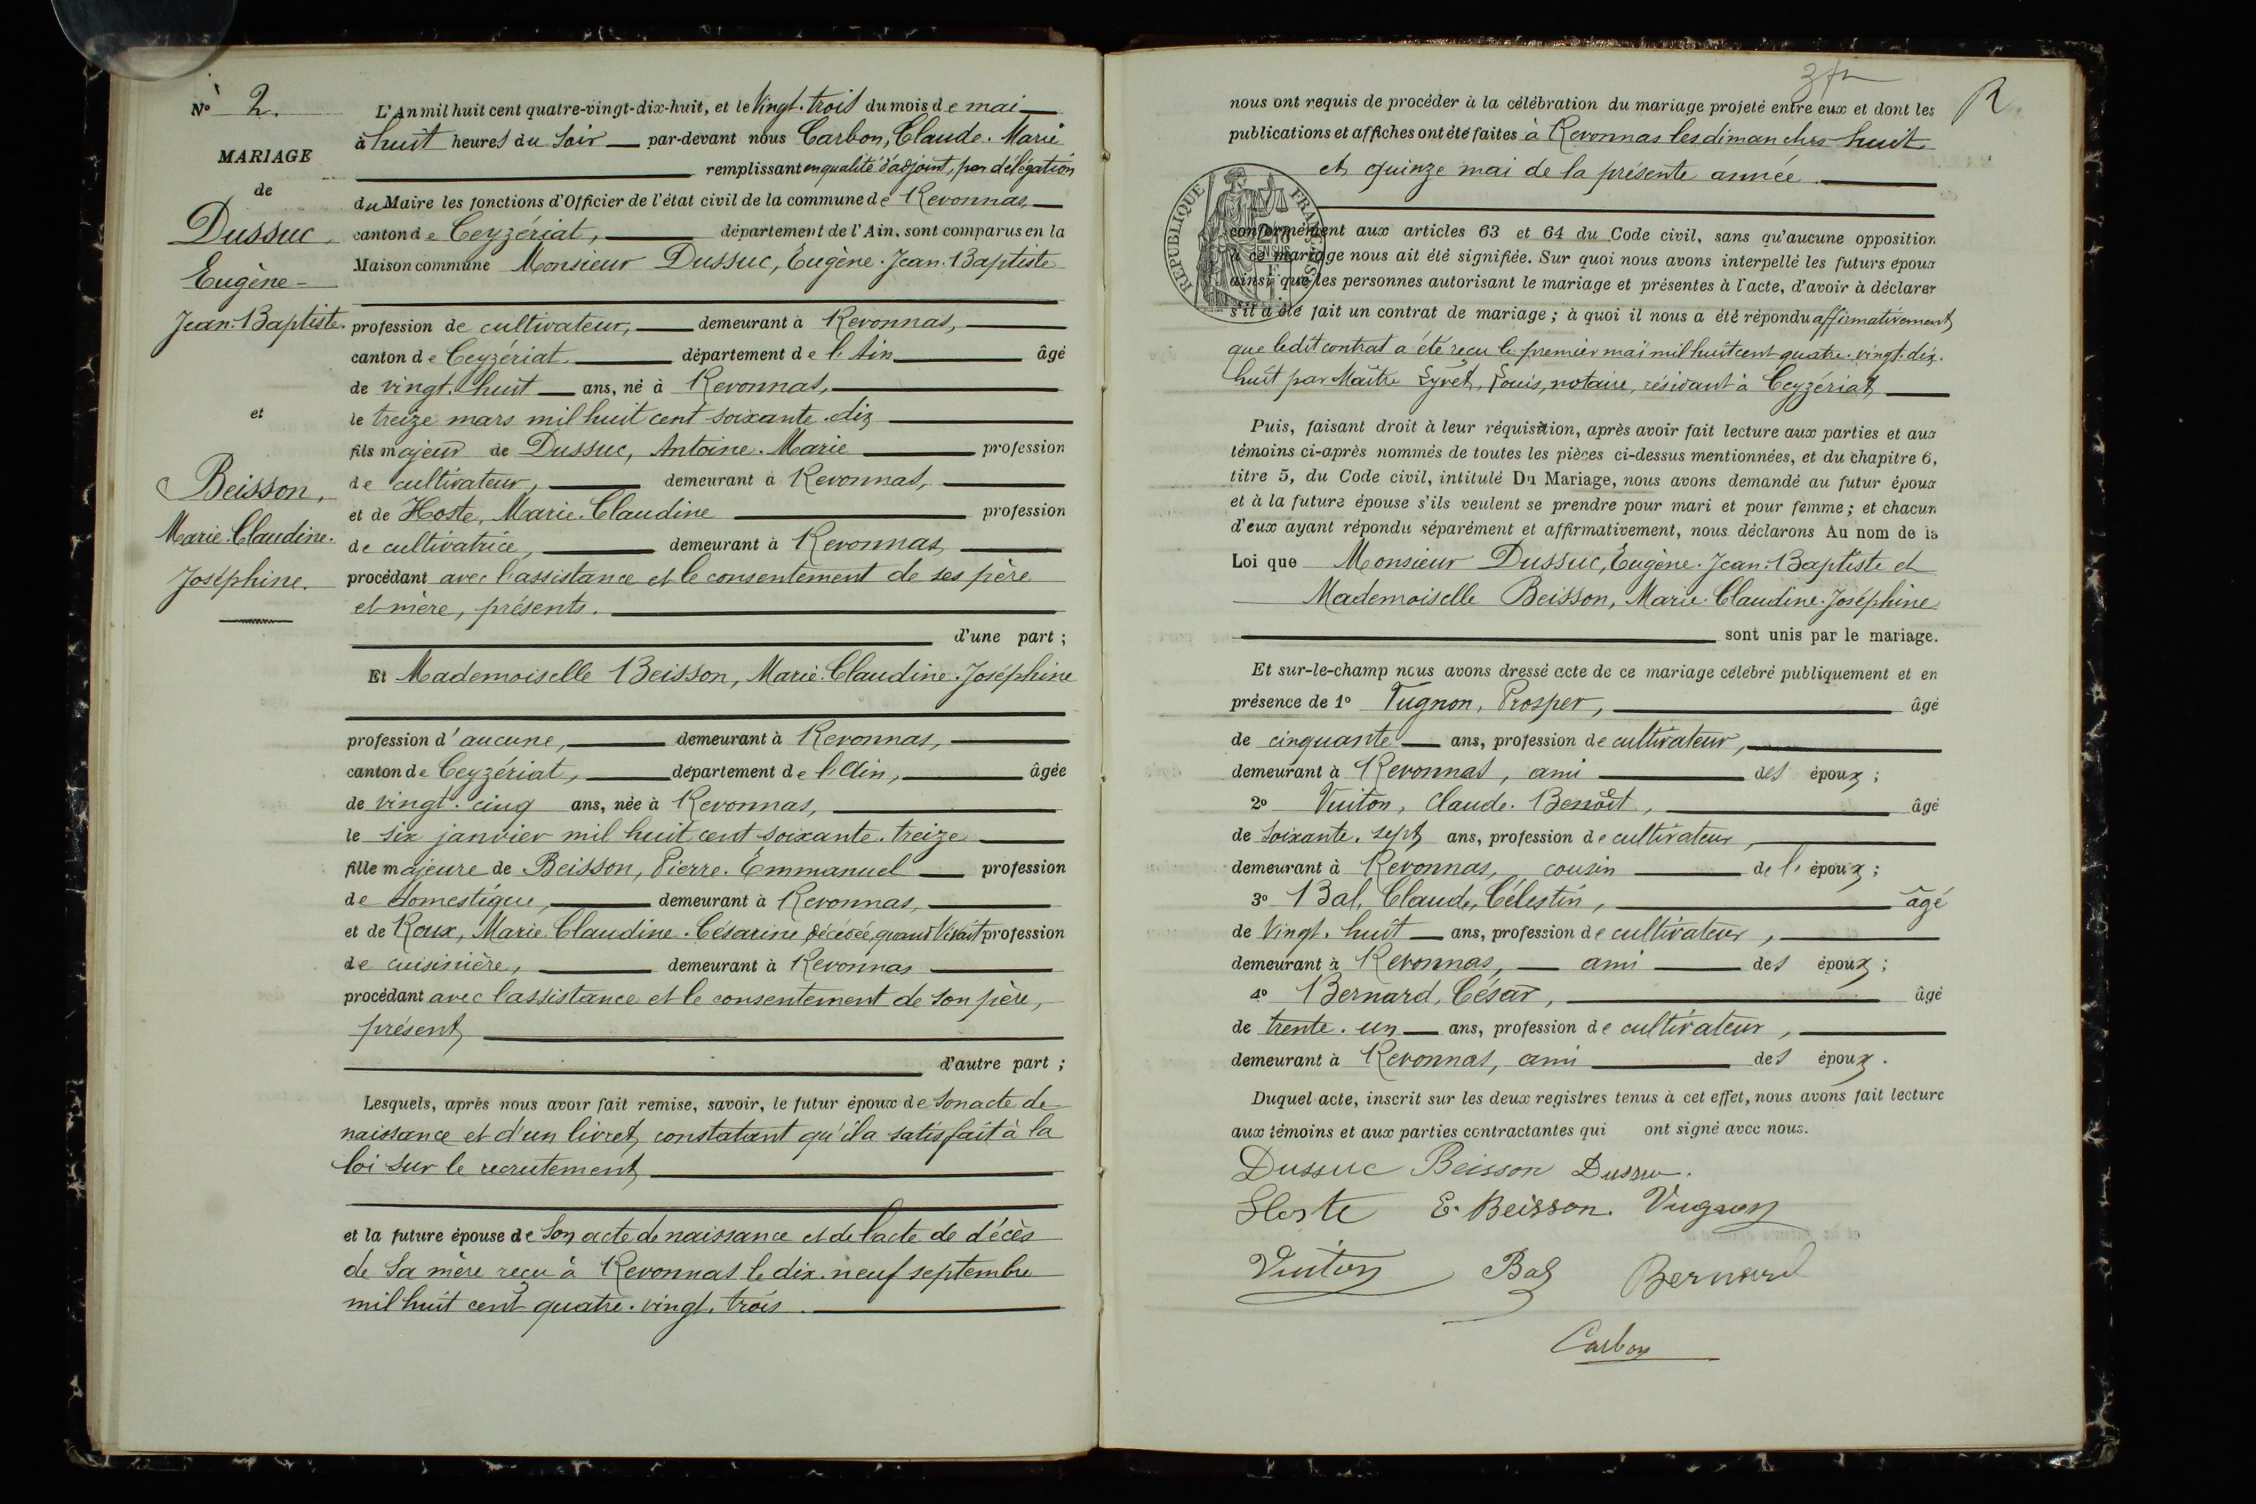 N° 2.
MARIAGE
de
Dussuc,
Eugène-
Jean-Baptiste.
et
Beisson,
Marie-Claudine-
Joséphine.
L'An mil huit cent quatre-vingt-dix-huit, et le vingt-trois du mois de mai
à huit heures du soir par-devant nous Carbon, Claude-Marie
remplissant en qualité d'adjoint, par délégation
du Maire les fonctions d'Officier de l'état civil de la commune de Revonnas,
canton de Ceyzériat, département de l'Ain, sont comparus en la
Maison commune Monsieur Dussuc, Eugène-Jean-Baptiste
profession de cultivateur, demeurant à Revonnas,
canton de Ceyzériat. département de l'Ain âgé
de vingt-huit ans, né à Revonnas,
le treize mars mil huit cent soixante-dix
fils majeur de Dussuc, Antoine-Marie profession
de cultivateur, demeurant à Revonnas,
et de Hoste, Marie-Claudine profession
de cultivatrice, demeurant à Revonnas,
procédant avec l'assistance et le consentement de ses père
et mère, présents.
d'une part ;
Et Mademoiselle Beisson, Marie-Claudine-Joséphine
profession d'aucune, demeurant à Revonnas,
canton de Ceyzériat, département de l'Ain, âgée
de vingt-cinq ans, née à Revonnas,
le six janvier mil huit cent soixante-treize
fille majeure de Beisson, Pierre-Emmanuel profession
de domestique, demeurant à Revonnas,
et de Roux, Marie-Claudine-Césarine décédée, quand vivait profession
de cuisinière, demeurant à Revonnas
procédant avec l'assistance et le consentement de son père,
présent,
d'autre part ;
Lesquels, après nous avoir fait remise, savoir, le futur époux de son acte de
naissance et d'un livret, constatant qu'il a satisfait à la
loi sur le recrutement,
et la future épouse de son acte de naissance et de l'acte de décès
de sa mère reçu à Revonnas le dix-neuf septembre
mil huit cent quatre-vingt-trois.
R
nous ont requis de procéder à la célébration du mariage projeté entre eux et dont les
publications et affiches ont été faites à Revonnas les dimanches huit
et quinze mai de la présente année
RÉPUBLIQUE FRANÇAISE
conformément aux articles 63 et 64 du Code civil, sans qu'aucune opposition
à ce mariage nous ait été signifiée. Sur quoi nous avons interpellé les futurs époux
ainsi que les personnes autorisant le mariage et présentes à l'acte, d'avoir à déclarer
s'il a été fait un contrat de mariage ; à quoi il nous a été répondu affirmativement,
que ledit contrat a été reçu le premier mai mil huit cent quatre-vingt-dix-
huit par Maître Lyvet, Louis, notaire, résidant à Ceyzériat,
Puis, faisant droit à leur réquisition, après avoir fait lecture aux parties et aux
témoins ci-après nommés de toutes les pièces ci-dessus mentionnées, et du chapitre 6,
titre 5, du Code civil, intitulé Du Mariage, nous avons demandé au futur époux
et à la future épouse s'ils veulent se prendre pour mari et pour femme ; et chacun
d'eux ayant répondu séparément et affirmativement, nous déclarons Au nom de la
Loi que Monsieur Dussuc, Eugène-Jean-Baptiste et
Mademoiselle Beisson, Marie-Claudine-Joséphine
sont unis par le mariage.
Et sur-le-champ nous avons dressé acte de ce mariage célébré publiquement et en
présence de 1° Vugnon, Prosper, âgé
de cinquante ans, profession de cultivateur,
demeurant à Revonnas, ami des époux ;
2° Vuiton, Claude-Benoît, âgé
de soixante-sept ans, profession de cultivateur,
demeurant à Revonnas, cousin de l'époux ;
3° Bal, Claude, Célestin, âgé
de vingt-huit ans, profession de cultivateur,
demeurant à Revonnas, ami des époux ;
4° Bernard, César, âgé
de trente-un ans, profession de cultivateur,
demeurant à Revonnas, ami des époux.
Duquel acte, inscrit sur les deux registres tenus à cet effet, nous avons fait lecture
aux témoins et aux parties contractantes qui ont signé avec nous.
Dussuc Beisson Dussuc.
Hoste E. Beisson. Vugnon
Vuiton Bal Bernard
Carbon